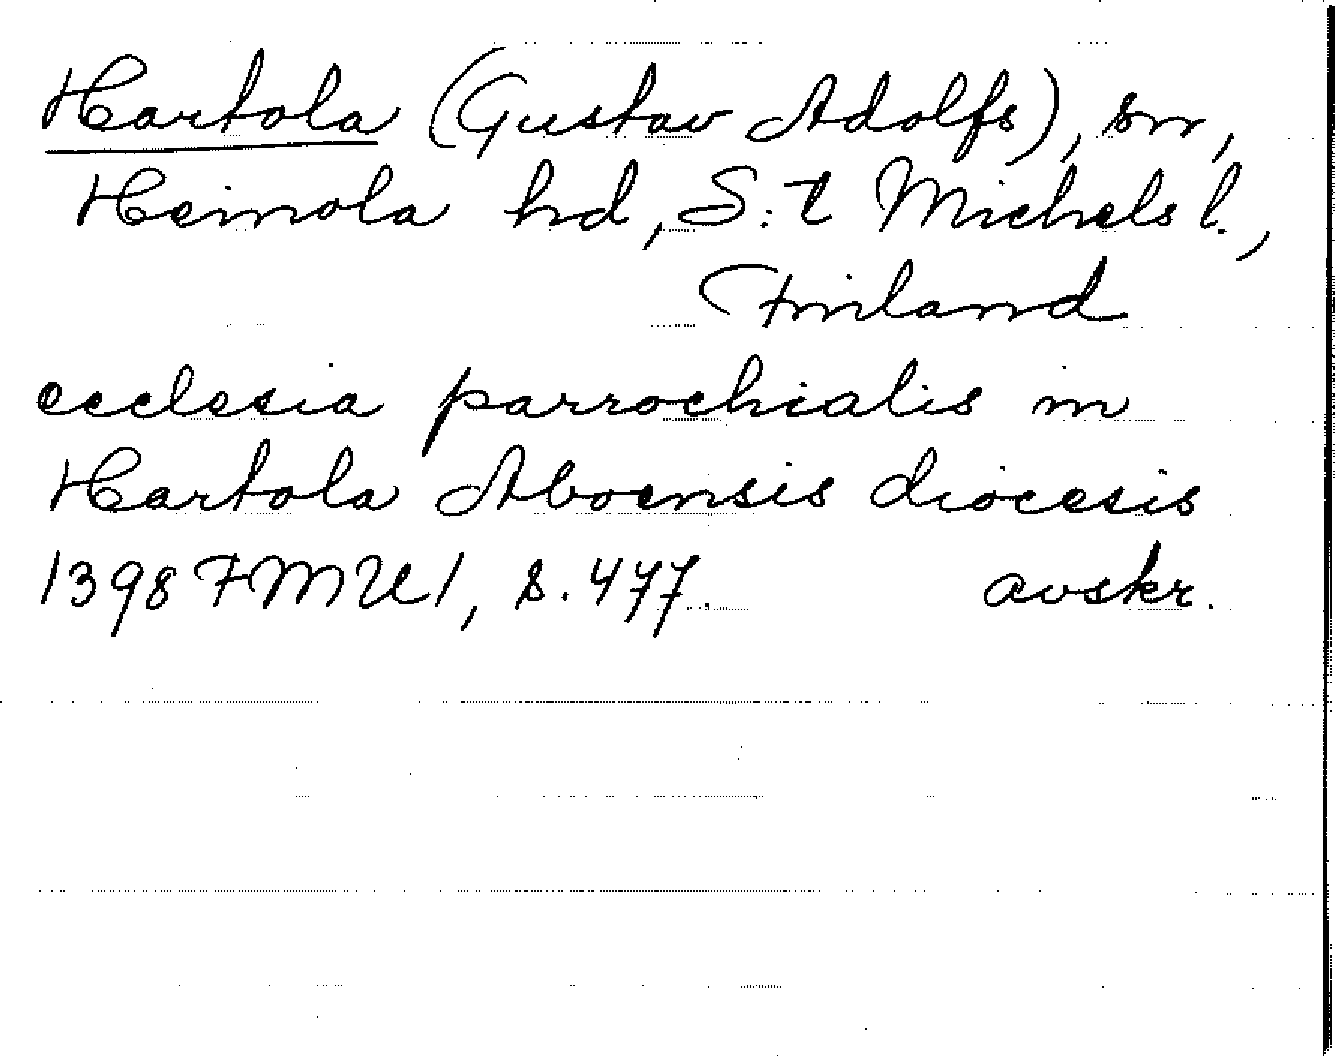 Hartola (Gustav Adolfs), sn,
Heinola hd, S:t Michels l.,
Finland
ecclesia parrochialis in
Hartola Aboensis diocesis
1398 FMU 1, s. 477. avskr.